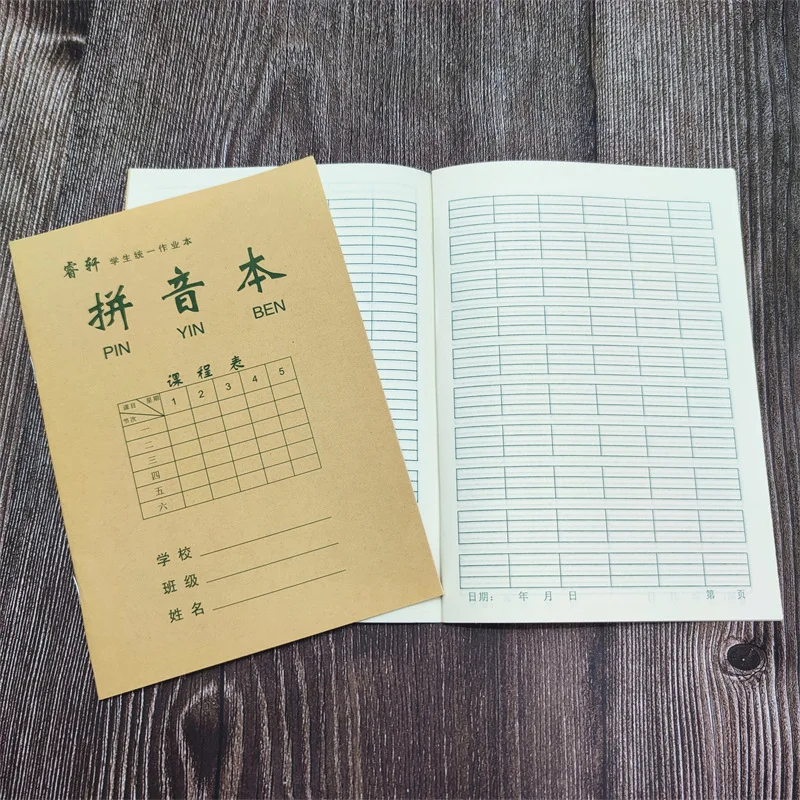 睿轩 学生统一作业本
拼音本
PIN YIN BEN
课程表
课目 星期 节次 1 2 3 4 5
一
二
三
四
五
六
学校
班级
姓名
日期: 年 月 日 第 页